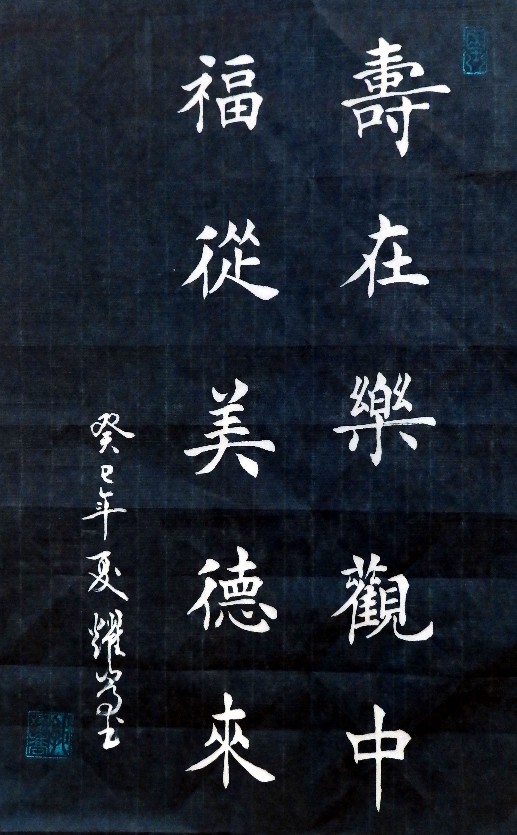 壽在樂觀中
福從美德來
癸巳年夏耀嵩书